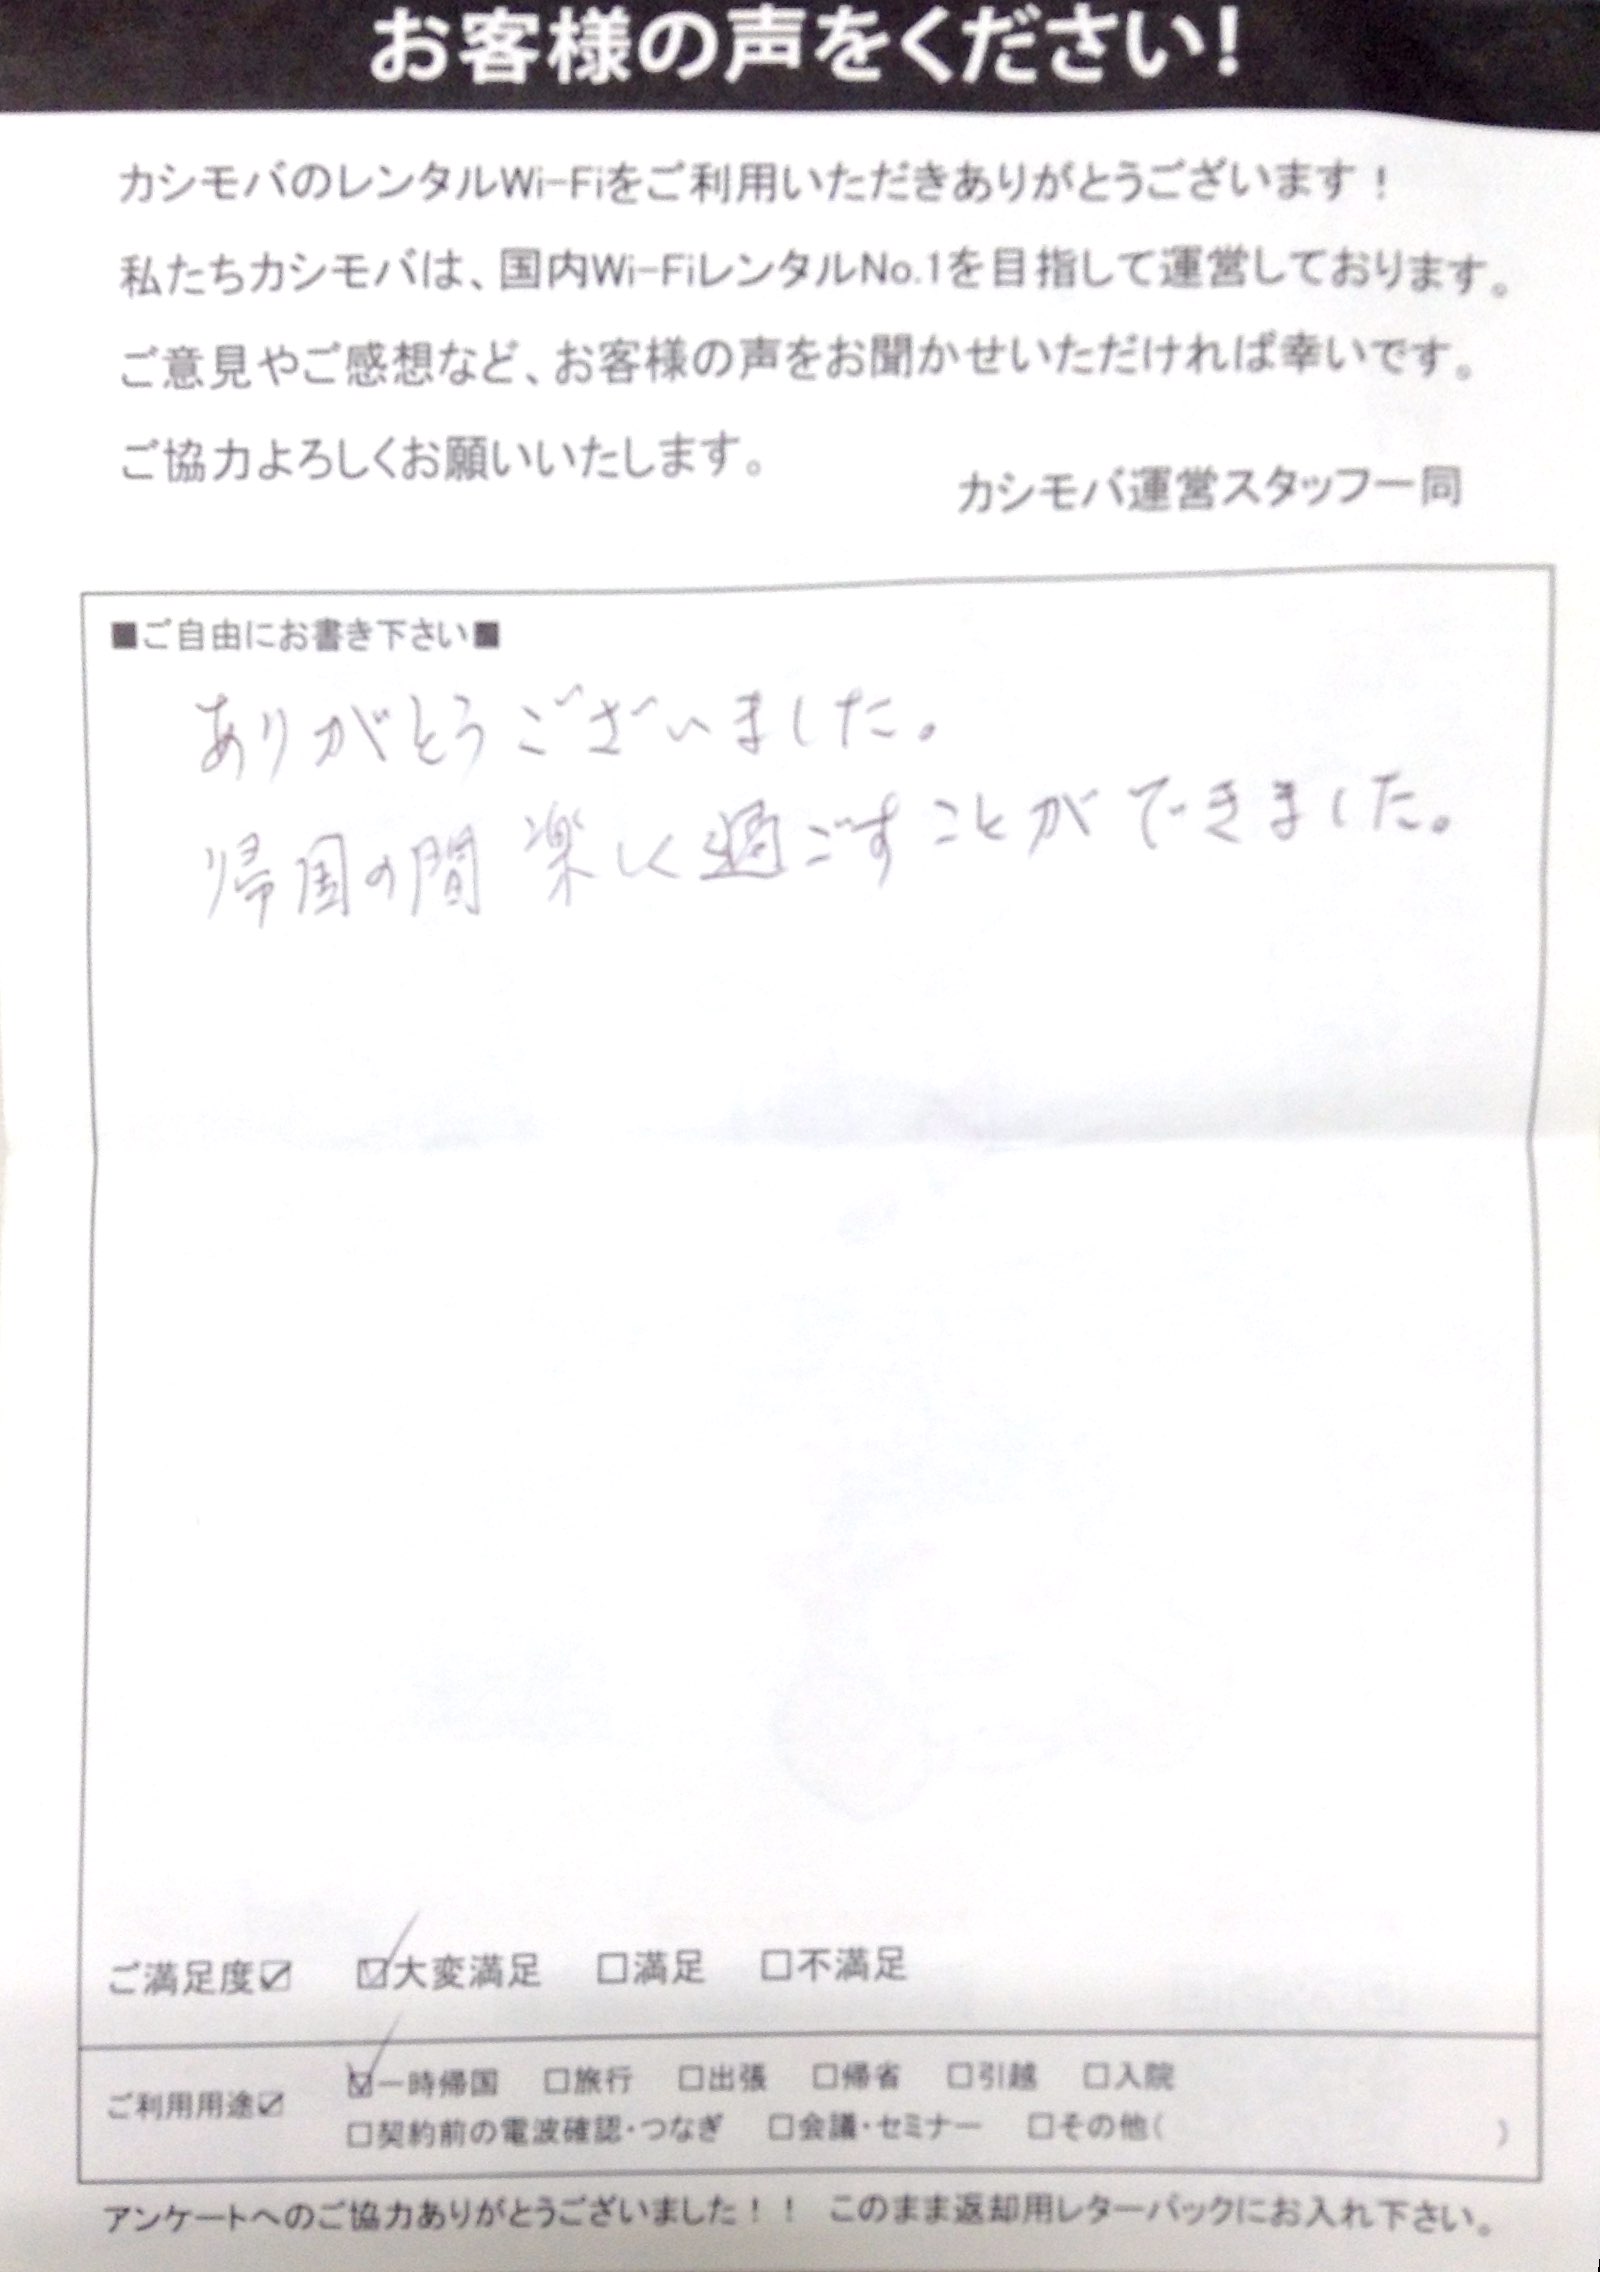 お客様の声をください!
カシモバのレンタルWi-Fiをご利用いただきありがとうございます！
私たちカシモバは、国内Wi-FiレンタルNo.1を目指して運営しております。
ご意見やご感想など、お客様の声をお聞かせいただければ幸いです。
ご協力よろしくお願いいたします。
カシモバ運営スタッフ一同
■ご自由にお書き下さい■
ありがとうございました。
帰国の間楽しく過ごすことができました。
ご満足度☑ ☑大変満足 □満足 □不満足
ご利用用途☑ ☑一時帰国 □旅行 □出張 □帰省 □引越 □入院
□契約前の電波確認・つなぎ □会議・セミナー □その他( )
アンケートへのご協力ありがとうございました！！ このまま返却用レターパックにお入れ下さい。